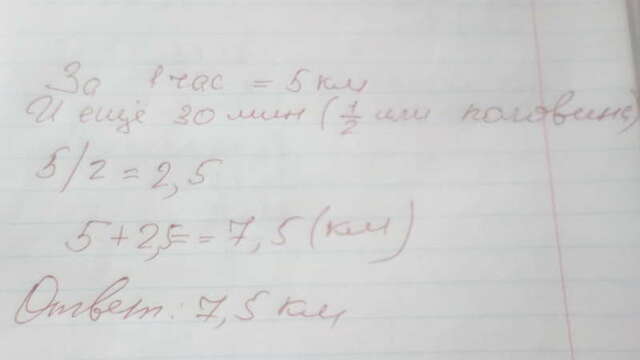 За 1 час = 5 км
И ещё 30 мин (1/2 или половина)
5/2 = 2,5
5 + 2,5 = 7,5 (км)
Ответ: 7,5 км